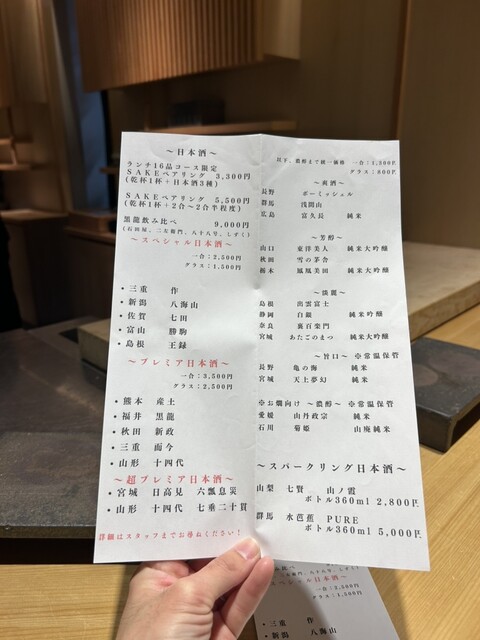 ～日本酒～
ランチ16品コース限定
SAKEペアリング 3,300円
(乾杯1杯+日本酒3種)
SAKEペアリング 5,500円
(乾杯1杯+2合～2合半程度)
黒龍飲み比べ 9,000円
(石田屋、二左衛門、八十八号、しずく)
～スペシャル日本酒～
一合:2,500円
グラス:1,500円
・三重 作
・新潟 八海山
・佐賀 七田
・富山 勝駒
・島根 王録
～プレミア日本酒～
一合:3,500円
グラス:2,500円
・熊本 産土
・福井 黒龍
・秋田 新政
・三重 而今
・山形 十四代
～超プレミア日本酒～
・宮城 日高見 六瓢息災
・山形 十四代 七垂二十貫
詳細はスタッフまでお尋ねください!
以下、濃醇まで統一価格 一合:1,500円
グラス:800円
～爽酒～
長野 ボーミッシェル
群馬 浅間山
広島 富久長 純米
～芳醇～
山口 東洋美人 純米大吟醸
秋田 雪の茅舎
栃木 鳳凰美田 純米大吟醸
～淡麗～
島根 出雲富士
静岡 白銀 純米吟醸
奈良 裏百楽門
宮城 あたごのまつ 純米大吟醸
～旨口～ ※常温保管
長野 亀の海 純米
宮城 天上夢幻 純米
※お燗向け ～濃醇～ ※常温保管
愛媛 山丹政宗 純米
石川 菊姫 山廃純米
～スパークリング日本酒～
山梨 七賢 山ノ霞
ボトル360ml 2,800円
群馬 水芭蕉 PURE
ボトル360ml 5,000円
(石田屋、二左衛門、八十八号、しずく)
スペシャル日本酒～
一合:2,500円
グラス:1,500円
・三重 作
・新潟 八海山